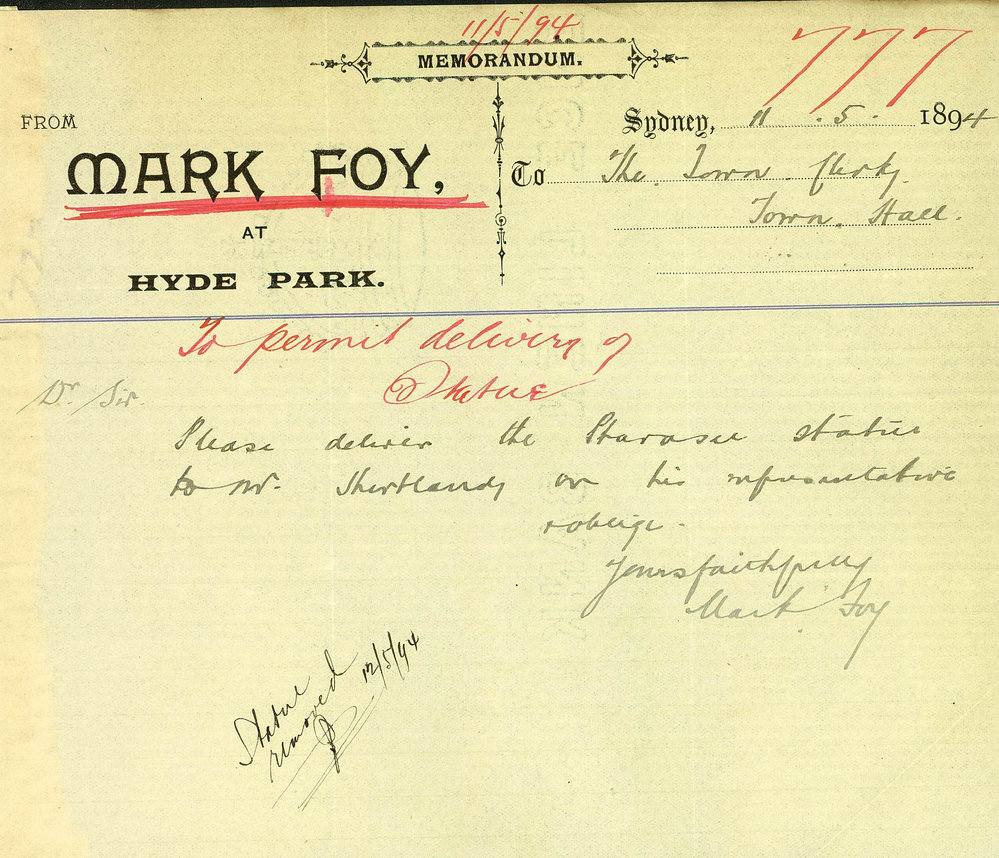 11/5/94
777
MEMORANDUM.
FROM
MARK FOY,
AT
HYDE PARK.
Sydney, 11 . 5 . 1894
To The Town Clerk,
Town Hall.
To permit delivery of
Statue
Dr Sir
Please deliver the statue
to Mr. or his representative
& oblige.
Yours faithfully
Mark Foy
Statue
removed 12/5/94